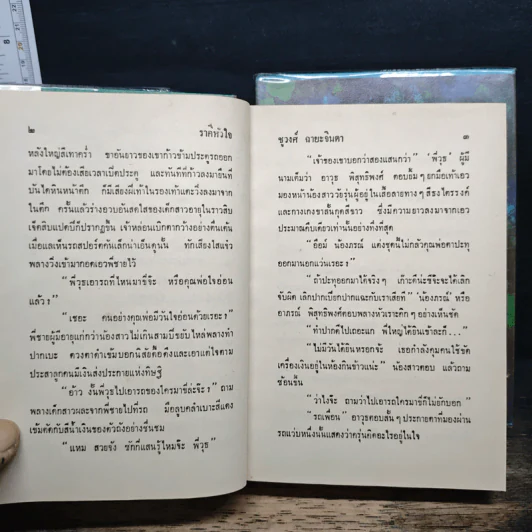 ๒ ราคีหัวใจ
หลังใหญ่สีเทาคร่ำ ขาอันยาวของเขาก้าวข้ามประตูรถออก
มาโดยไม่ต้องเสียเวลาเปิดประตู และทันทีที่ก้าวลงมายืนที่
บันไดหินหน้าตึก ก็มีเสียงฝีเท้าในรองเท้าแตะวิ่งลงมาจาก
ในตึก ครั้นแล้วร่างอวบอันสดใสของเด็กสาวอายุในราวสิบ
เจ็ดสิบแปดปีก็ปรากฏขึ้น เจ้าหล่อนเบิกตากว้างอย่างตื่นเต้น
เมื่อแลเห็นรถสปอร์ตคันเล็กน่าเอ็นดูคันนั้น ทักเสียงใสแจ๋ว
พลางวิ่งเข้ามากอดเอวพี่ชายไว้
“พี่วุธเอารถที่ไหนมาขี่จ๊ะ หรือคุณพ่อใจอ่อน
แล้ว ?”
“เชอะ คนอย่างคุณพ่อมีวันใจอ่อนด้วยเรอะ ?”
พี่ชายผู้มีอายุแก่กว่าน้องสาวไม่เกินสามปีขยับไหล่พลางทำ
ปากเบะ ดวงตาดำเข้มบอกนิสัยดื้อดึงและเอาแต่ใจตาม
ประสาลูกคนมีเงินส่งประกายแห่งทิษฐิ
“อ้าว งั้นพี่วุธไปเอารถของใครมาขี่ล่ะจ๊ะ ?” ถาม
พลางเด็กสาวผละจากพี่ชายไปที่รถ มือลูบคลำเบาะสีแดง
เข้มตัดกับสีน้ำเงินของตัวถังอย่างชื่นชม
“แหม สวยจัง ขี่ก็แสนรู้ไหมจ๊ะ พี่วุธ”
ชูวงศ์ ฉายะจินดา ๓
“เจ้าของเขาบอกว่าสองแสนกว่า” ‘พี่วุธ’ ผู้มี
นามเต็มว่า อาวุธ พิสุทธิพงศ์ ตอบยิ้ม ๆ ยกมือเท้าเอว
มองหน้าน้องสาววัยรุ่นผู้อยู่ในเสื้อลายทาง ๆ สีธงไตรรงค์
และกางเกงขาสั้นกุดสีขาว ซึ่งมีความยาวลงมาจากเอว
ประมาณคืบเดียวเท่านั้นอย่างทึ่งที่สุด
“อือม์ น้องภรณ์ แต่งชุดนี้ไม่กลัวคุณพ่อตาปะทุ
ออกมานอกแว่นเรอะ ?”
“ถ้าปะทุออกมาได้จริง ๆ เถ้าะดีน่ะซีจะจะได้เลิก
จับผิด เลิกปากเปียกปากแฉะกับเราเสียที” ‘น้องภรณ์’ หรือ
อาภรณ์ พิสุทธิพงศ์ตอบพลางหัวเราะคิก ๆ อย่างเห็นขัน
“ทำปากดีไปเถอะแก พี่ใหญ่ได้ยินเข้าละก็...”
“ไม่มีวันได้ยินหรอกจ้ะ เธอกำลังคุมคนใช้ขัด
เครื่องเงินอยู่ในห้องกินข้าวแน่ะ” น้องสาวตอบ แล้วถาม
ซ้อนขึ้น
“ว่าไงจ๊ะ ถามว่าไปเอารถใครมาขี่ก็ไม่ยักบอก”
“รถเพื่อน” อาวุธตอบสั้น ๆ ประกายตาที่มองผ่าน
รถแว่บหนึ่งนั้นแสดงว่าครุ่นคิดอะไรอยู่ในใจ